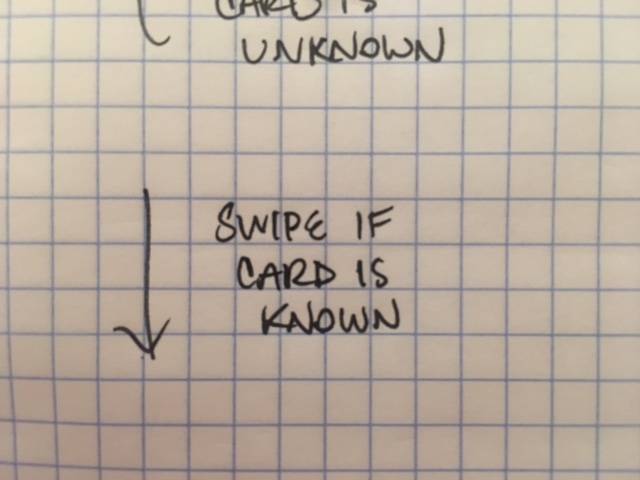 CARD IS
UNKNOWN
SWIPE IF
CARD IS
KNOWN